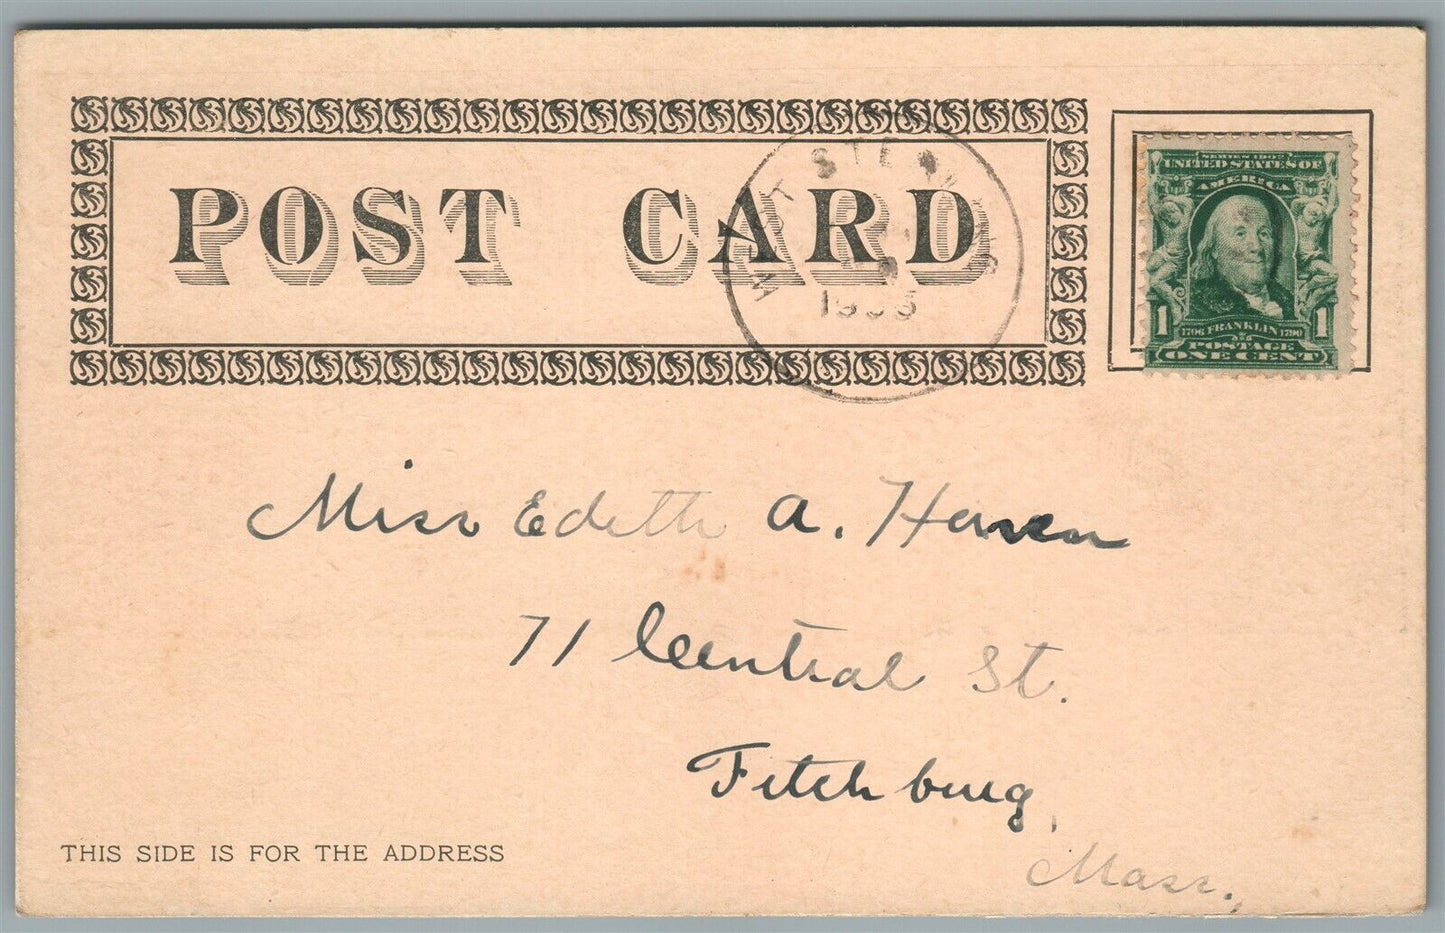 POST CARD
WEST STERLING
SERIES 1902
UNITED STATES OF
AMERICA
1 1
1706 FRANKLIN 1790
POSTAGE
ONE CENT
Miss Edith A. Haven
71 Central St.
Fitchburg,
Mass.
THIS SIDE IS FOR THE ADDRESS